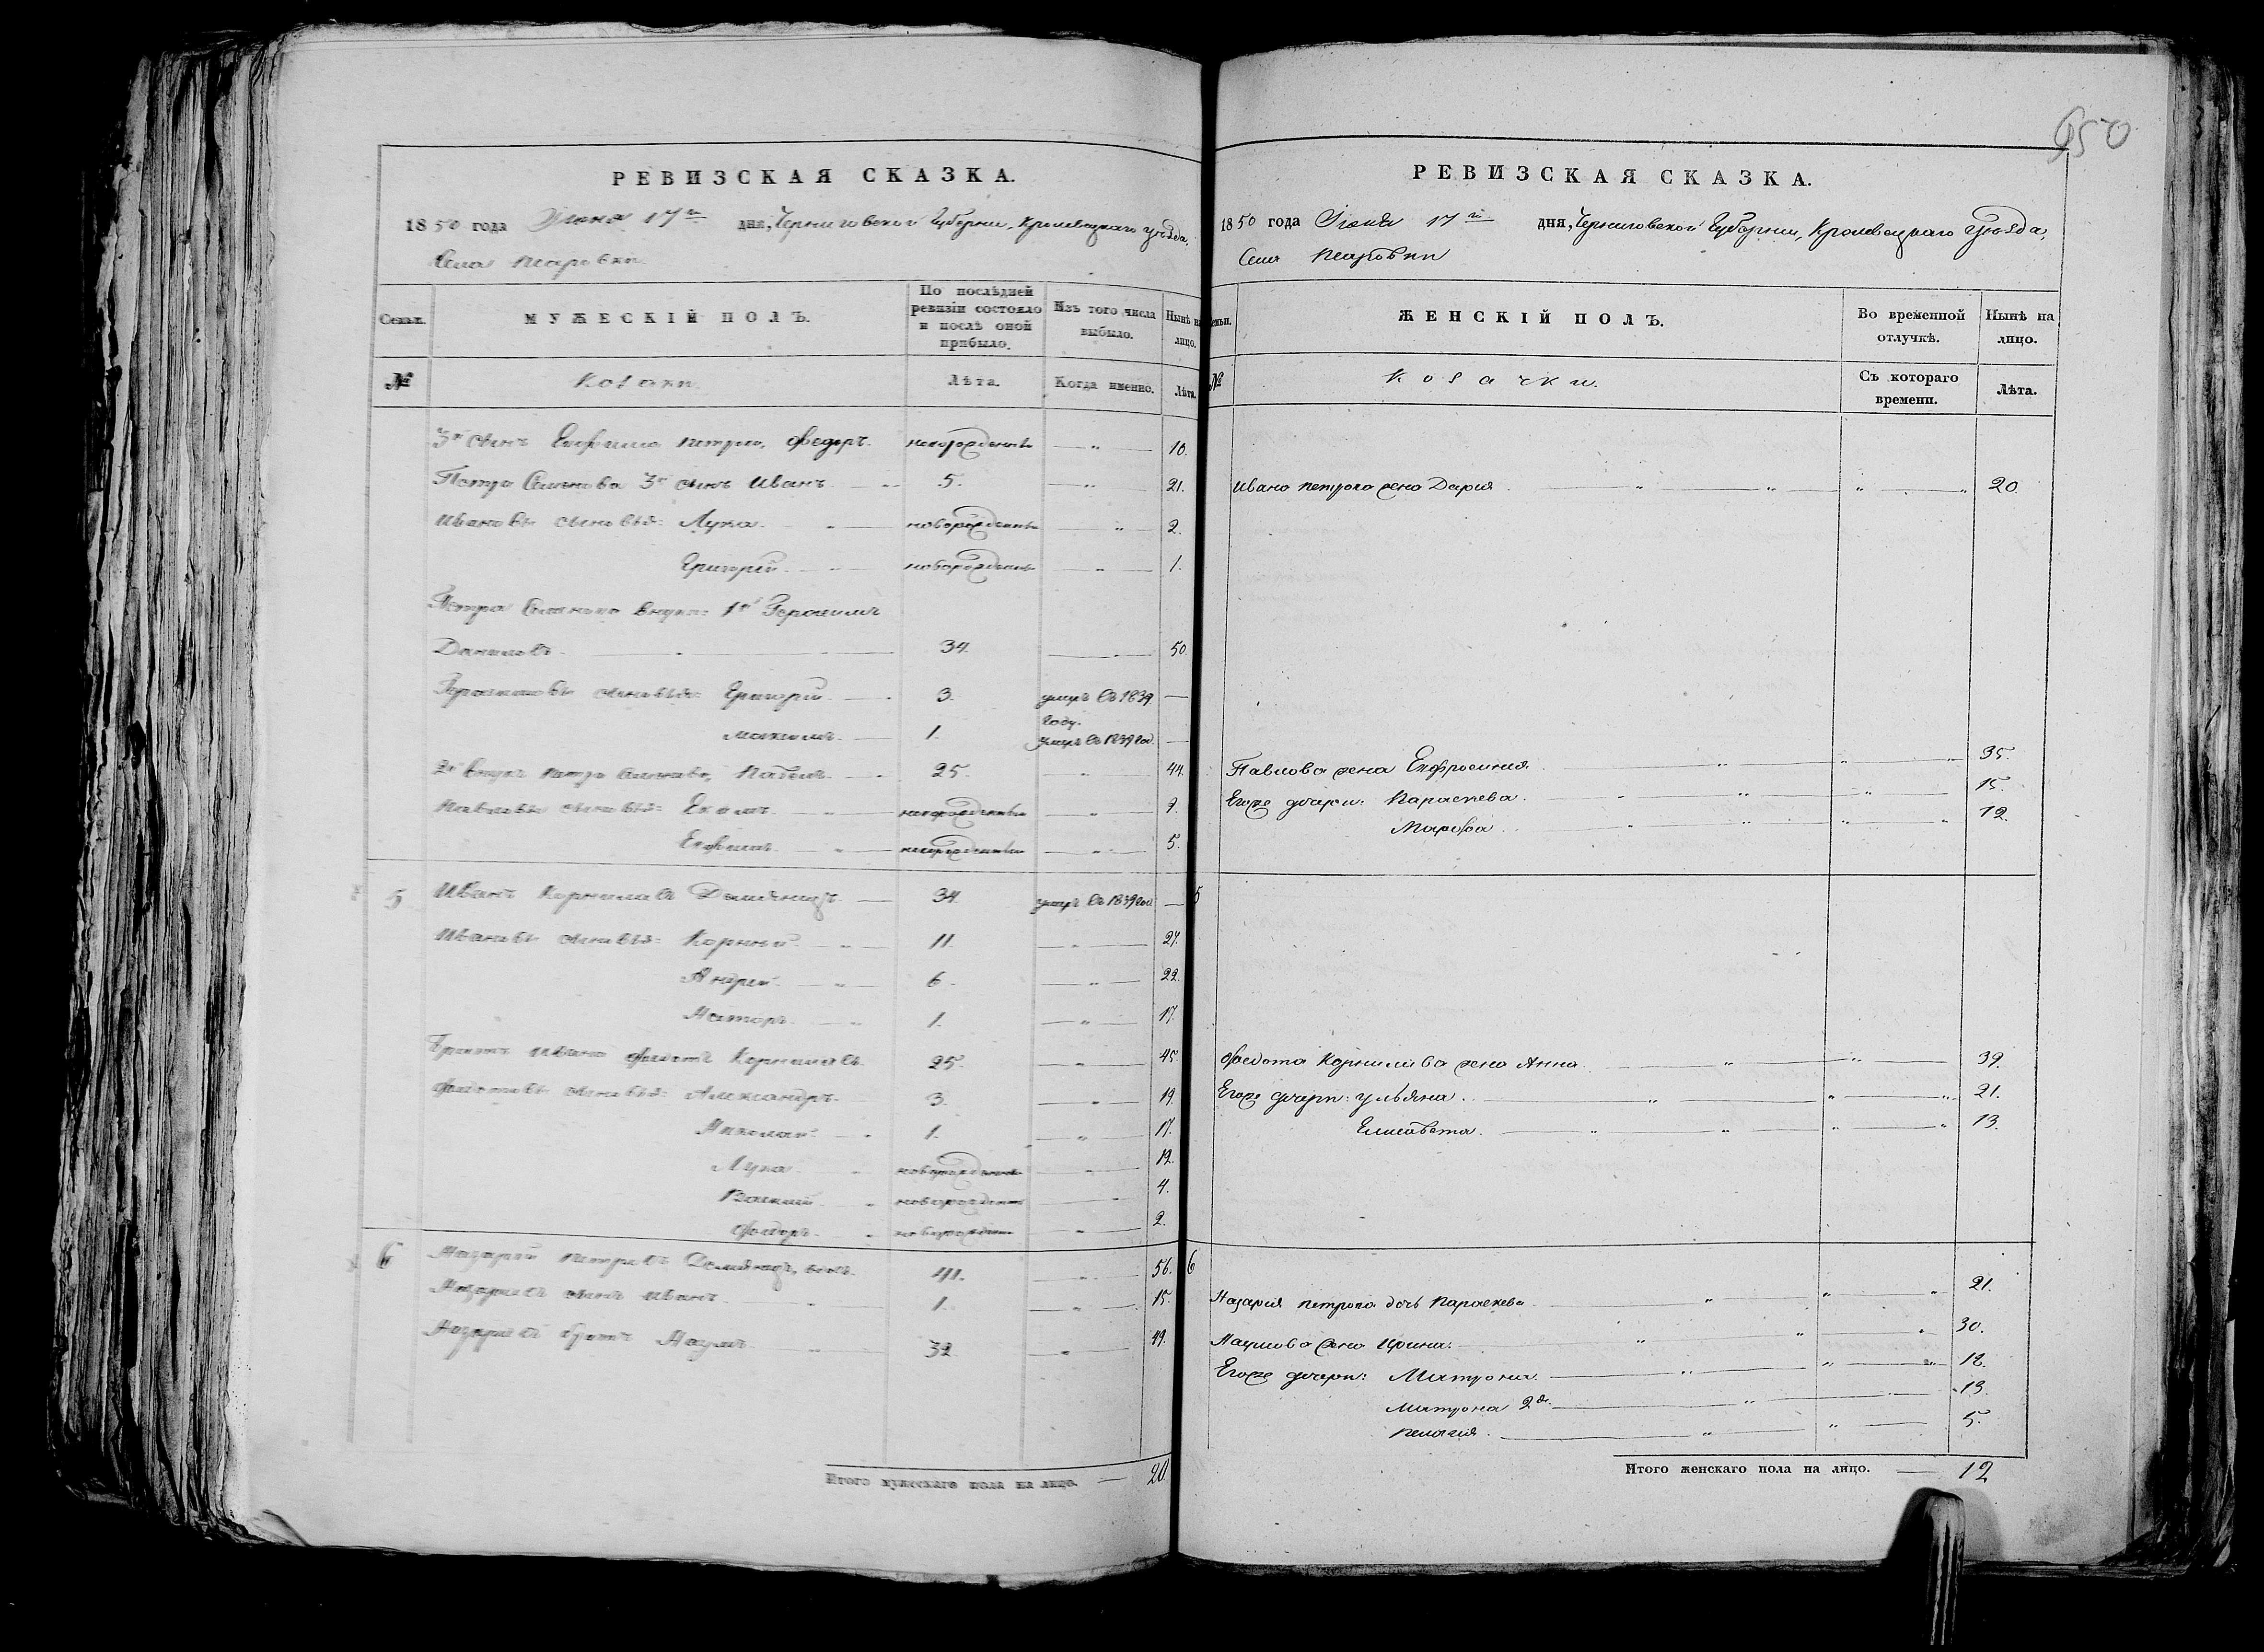 950
РЕВИЗСКАЯ СКАЗКА.
1850 года Іюня 17го дня, Черниговской Губерніи, Кролевецкаго уѣзда,
Села
Семьи. МУЖЕСКІЙ ПОЛЪ. По послѣдней ревизіи состояло и послѣ оной прибыло. Изъ того числа выбыло. Нынѣ на лицо.
№ Козаки. Лѣта. Когда именно. Лѣта.
3й сынъ Ефима Петрова, Федоръ. новорожденный — 10.
Петра Семенова 3й сынъ Иванъ. 5. — 21.
Ивановы сыновья: Лука. новорожденный — 2.
Григорій. новорожденный — 1.
Петра Семенова внуки: 1й Герасимъ
Даниловъ. 34. — 50.
Герасимовы сыновья: Григорій. 3. умеръ въ 1839 году. —
Максимъ. 1. умеръ въ 1839 год. —
2й внукъ Петра Семенова, Павелъ. 25. — 44.
Павловы сыновья: новорожденный — 9.
Ефимъ. новорожденный — 5.
5 Иванъ Корниловъ 34. умеръ въ 1839 год. —
Ивановы сыновья: Корней. 11. — 27.
Андрей. 6. — 22.
1. — 17.
Братъ Ивана Федотъ Корниловъ. 25. — 45.
Федотовы сыновья: Александръ. 3. — 19.
Николай. 1. — 17.
Лука. новорожденный — 12.
Василій. новорожден — 4.
Федоръ. новорожден — 2.
6 Назарій Петровъ 41. — 56.
Назаріевъ сынъ Иванъ. 1. — 15.
Назаріевъ братъ Наумъ. 32. — 49.
Итого мужескаго пола на лицо. — 20.
РЕВИЗСКАЯ СКАЗКА.
1850 года Іюня 17го дня, Черниговской Губерніи, Кролевецкаго Уѣзда,
Села
Семьи. ЖЕНСКІЙ ПОЛЪ. Во временной отлучкѣ. Нынѣ на лицо.
№ Козачки. Съ котораго времени. Лѣта.
Ивана Петрова жена Дарія. 20.
Павлова жена Ефросинія. 35.
Егоже дочери: Параскева. 15.
Марфа. 12.
5
Федота Корнилова жена Анна. 39.
Егоже дочери: Ульяна. 21.
Елисавета. 13.
6
Назарія Петрова дочь Параскева. 21.
Наумова жена Ирина. 30.
Егоже дочери: Матрона. 18.
Матрона 2я. 13.
Пелагія. 5.
Итого женскаго пола на лицо. — 12